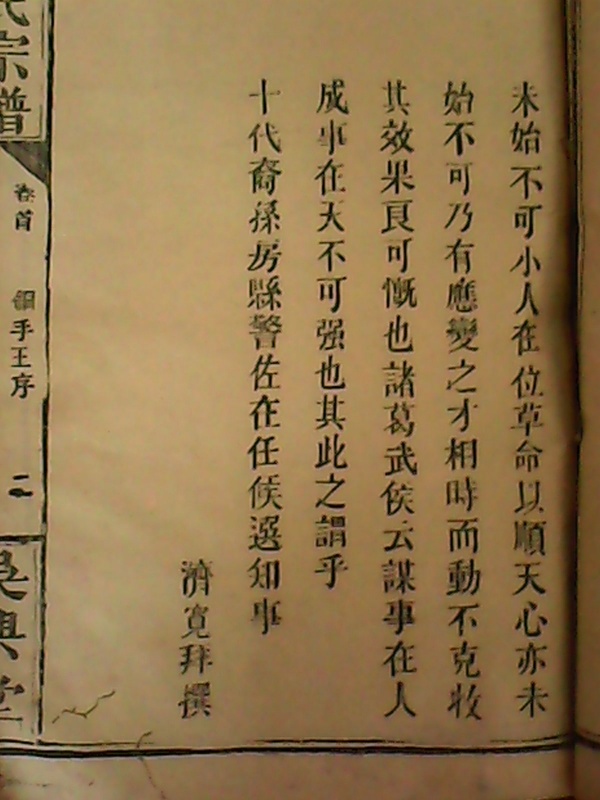 未始不可小人在位草命以順天心亦未
始不可乃有應變之才相時而動不克收
其效果良可慨也諸葛武侯云謀事在人
成事在天不可强也其此之謂乎
十代裔孫房縣警佐在任候選知事
濟寬拜撰
氏宗譜
卷首
王序
二
吳興堂